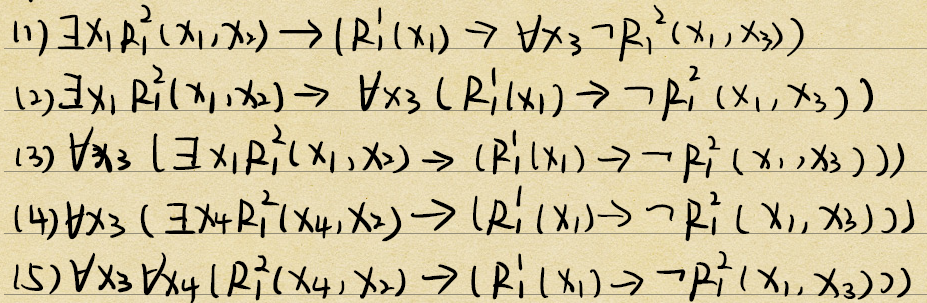 (1) ∃x₁R₁²(x₁,x₂)→(R₁¹(x₁)→∀x₃¬R₁²(x₁,x₃))
(2) ∃x₁R₁²(x₁,x₂)→∀x₃(R₁¹(x₁)→¬R₁²(x₁,x₃))
(3) ∀x₃(∃x₁R₁²(x₁,x₂)→(R₁¹(x₁)→¬R₁²(x₁,x₃)))
(4) ∀x₃(∃x₄R₁²(x₄,x₂)→(R₁¹(x₁)→¬R₁²(x₁,x₃)))
(5) ∀x₃∀x₄(R₁²(x₄,x₂)→(R₁¹(x₁)→¬R₁²(x₁,x₃)))